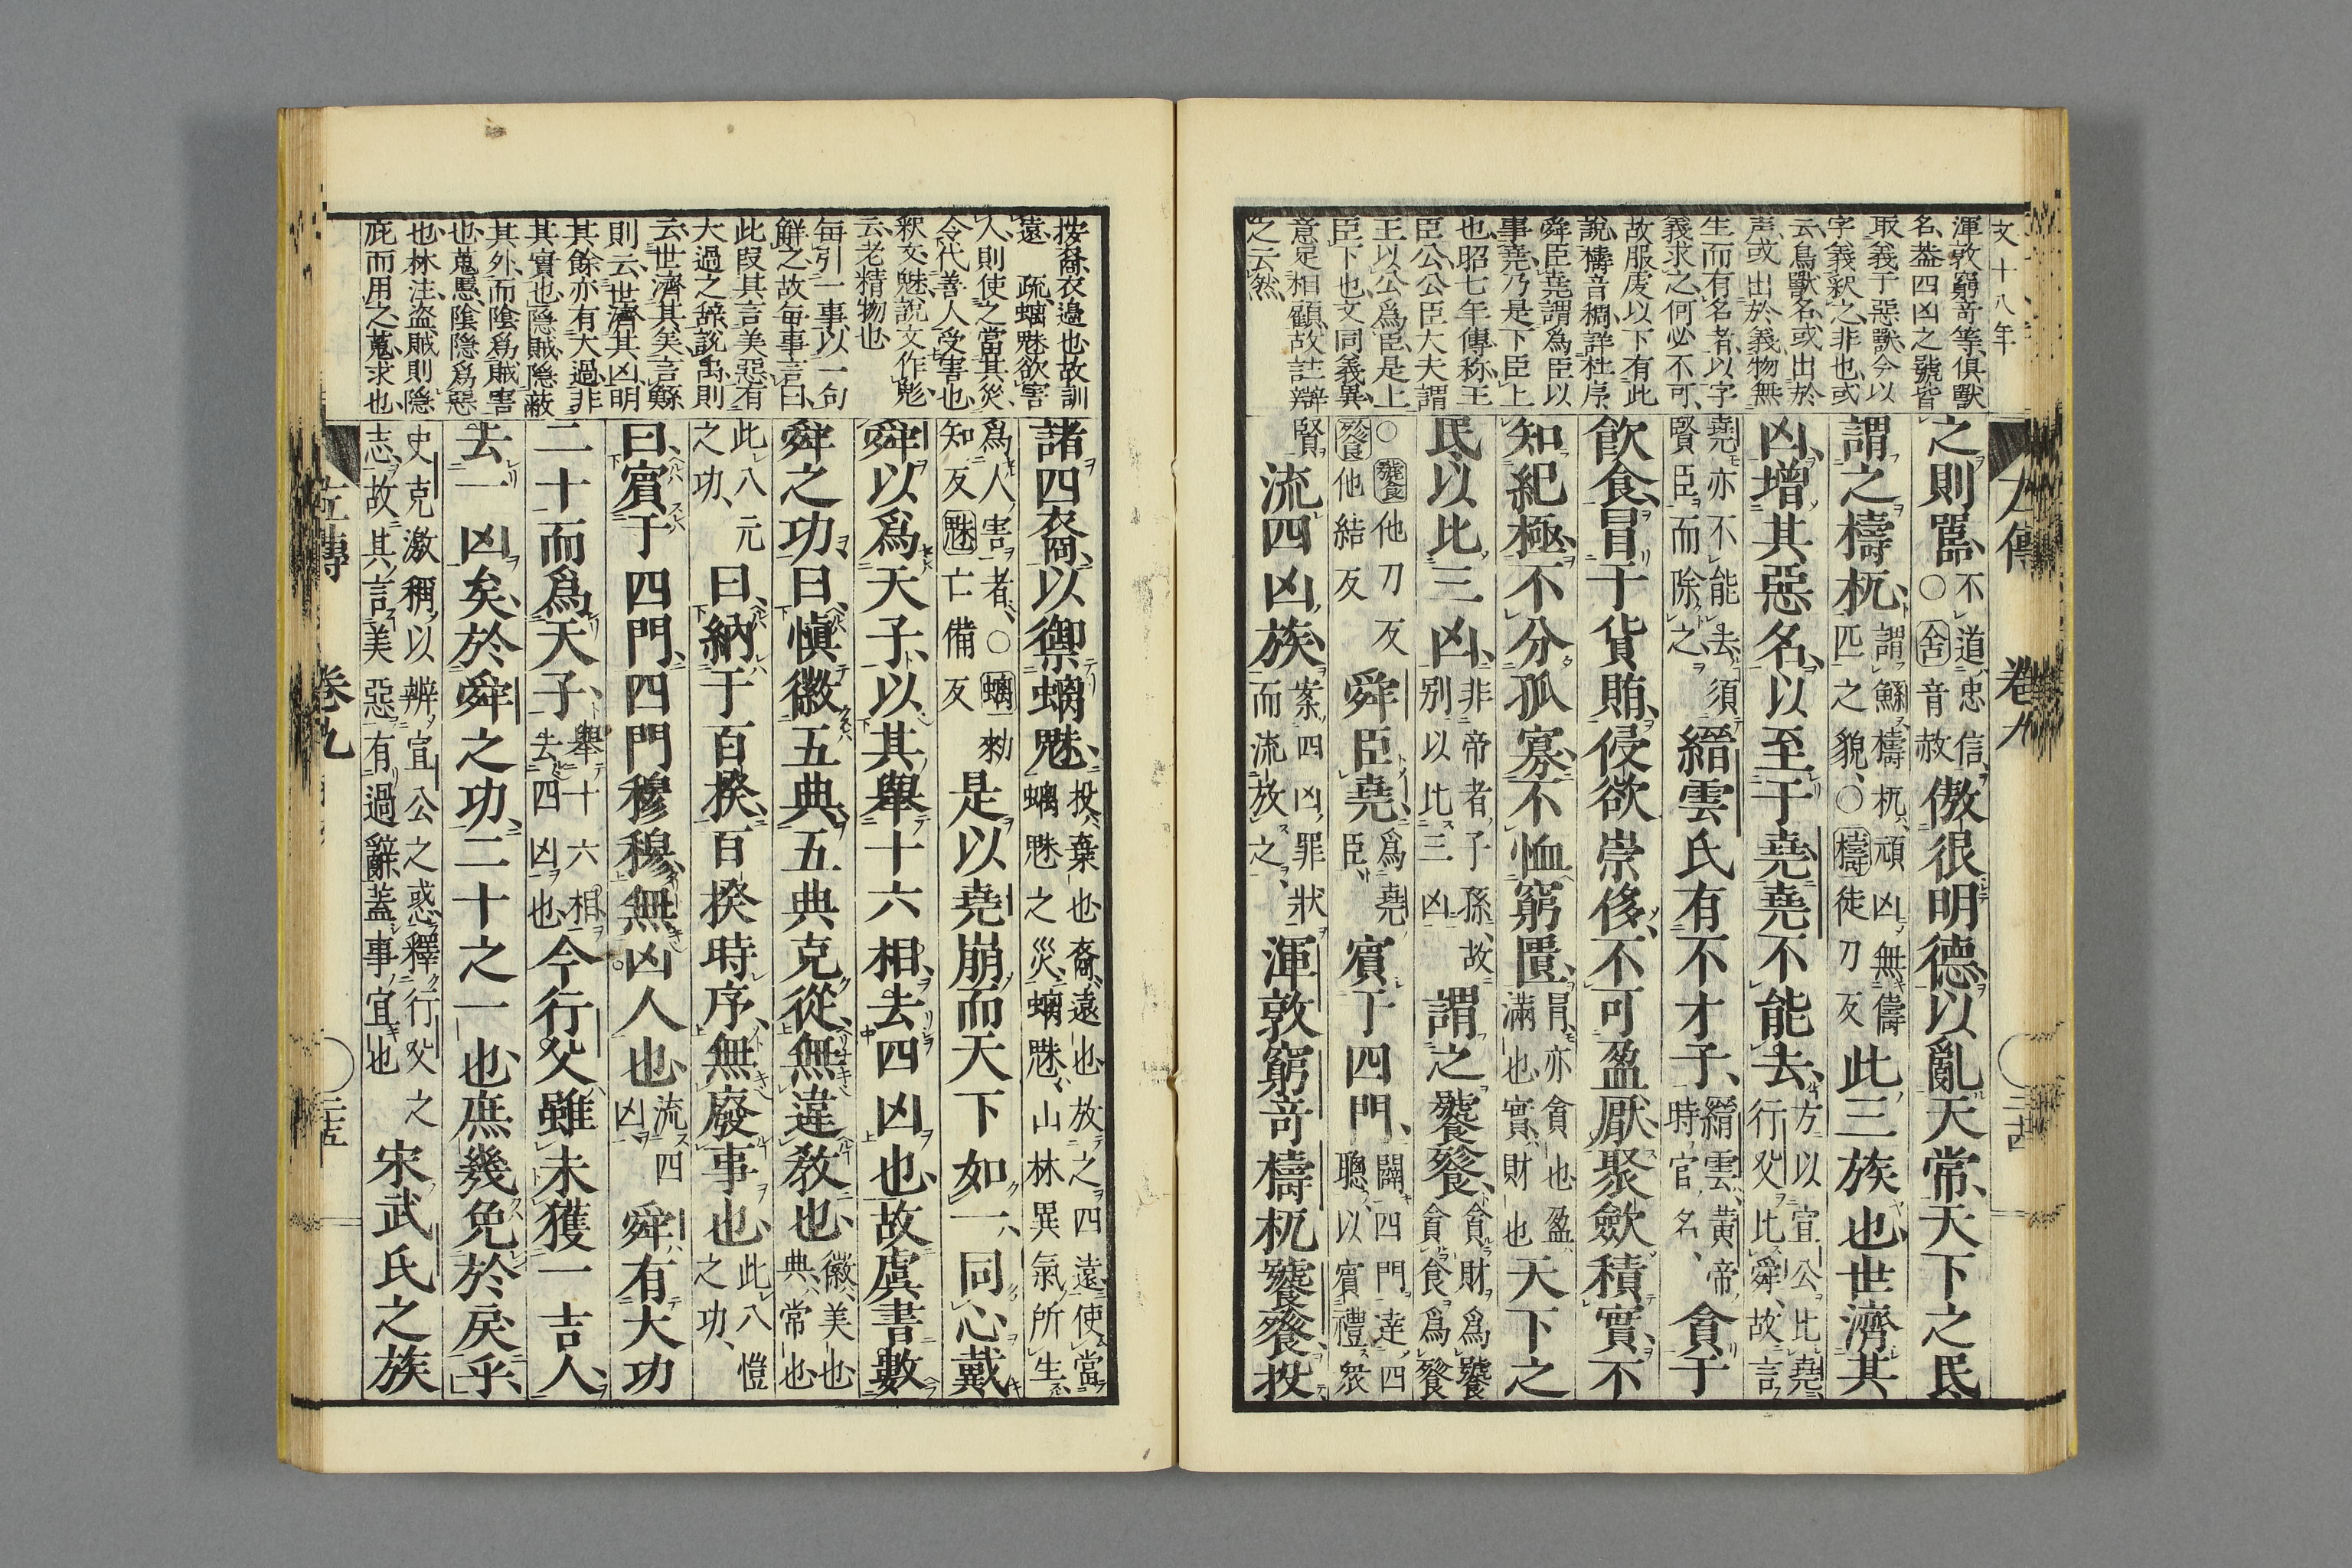 文十八年
渾敦窮竒等俱獸
名葢四凶之號皆
取義于惡獸今以
字義釈之非也或
云鳥獸名或出於
声或出於義物無
生而有名者以字
義求之何必不可
故服虔以下有此
說檮音稠詳杜序
舜臣堯謂為臣以
事堯乃是下臣上
也昭七年傳称王
臣公公臣大夫謂
王以公為臣是上
臣下也文同義異
意足相顧故註辯
之云然
之則嚚不道忠信○舍音赦傲很明德以亂天常天下之民
謂之檮杌謂鯀檮杌頑凶無儔匹之貌○檮徒刀反此三族也世濟其
凶增其惡名以至于堯堯不能去方以宣公比堯行父比舜故言
堯亦不能去須賢臣而除之縉雲氏有不才子縉雲黃帝時官名貪于
飲食冒于貨賄侵欲崇侈不可盈厭聚歛積實不
知紀極不分孤寡不恤窮匱冒亦貪也盈滿也實財也天下之
民以比三凶非帝者子孫故別以比三凶謂之饕餮貪財為饕貪食為餮
○饕他刀反餮他結反舜臣堯為堯臣賓于四門闢四門達四聰以賓禮衆
賢流四凶族案四凶罪狀而流放之渾敦窮竒檮杌饕餮投
左傳 卷九 二十四
按裔衣邉也故訓
遠 疏螭魅欲害
人則使之當其災
令代善人受害也
釈文魅說文作鬽
云老精物也
每引一事以一句
觧之故每事言曰
此叚其言美惡有
大過之辞說禹則
云世濟其美言鯀
則云世濟其凶明
其餘亦有大過非
其實也隠賊隠蔽
其外而陰為賊害
也蒐慝陰隠為惡
也林注盗賊則隠
庇而用之蒐求也
諸四裔以禦螭魅投棄也裔遠也放之四遠使當螭魅之災螭魅山林異氣所生
為人害者○螭勑知反魅亡備反是以堯崩而天下如一同心戴
舜以為天子以其舉十六相去四凶也故虞書數
舜之功曰愼徽五典五典克從無違敎也徽美也典常也
此八元之功曰納于百揆百揆時序無廢事也此八愷之功
曰賓于四門四門穆穆無凶人也流四凶舜有大功
二十而為天子舉十六相去四凶也今行父雖未獲一吉人
去一凶矣於舜之功二十之一也庶幾免於戾乎
史克激稱以辨宣公之惑釋行父之志故其言美惡有過辭蓋事宜也宋武氏之族
左傳 卷九 二十五